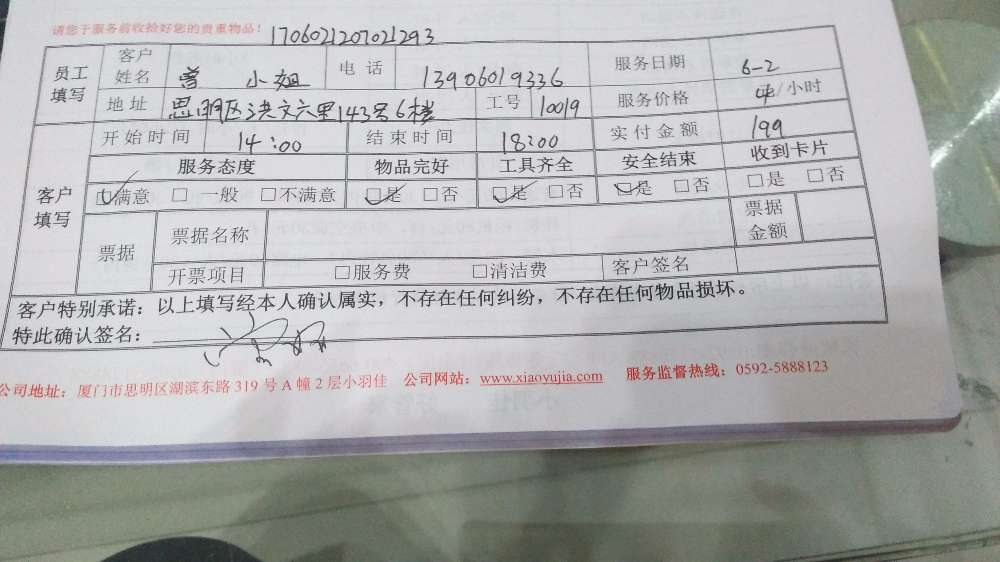 请您于服务前收捡好您的贵重物品！ 1706021207021293
员工填写 客户姓名 曾 小姐 电话 13906019336 服务日期 6-2
地址 思明区洪文六里143号6楼 工号 10019 服务价格 /小时
客户填写 开始时间 14:00 结束时间 18:00 实付金额 199
服务态度 物品完好 工具齐全 安全结束 收到卡片
☑满意 □一般 □不满意 ☑是 □否 ☑是 □否 ☑是 □否 □是 □否
票据 票据名称 票据金额
开票项目 □服务费 □清洁费 客户签名
客户特别承诺：以上填写经本人确认属实，不存在任何纠纷，不存在任何物品损坏。
特此确认签名：
公司地址：厦门市思明区湖滨东路 319 号 A 幢 2 层小羽佳 公司网站：www.xiaoyujia.com 服务监督热线：0592-5888123